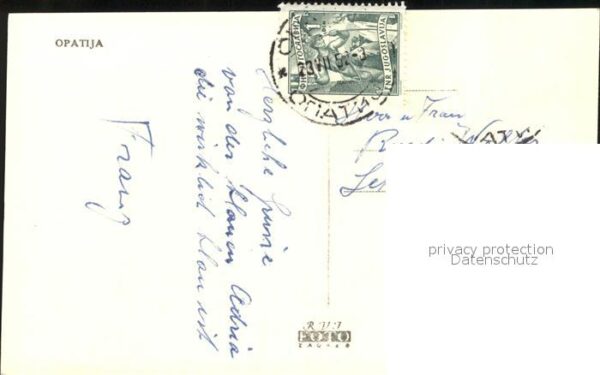 OPATIJA
Herzliche Grüsse
von der blauen Adria
die wirklich blau ist
Franz
ФНР ЈУГОСЛАВИЈА
FNR JUGOSLAVIJA
1
ОПАТИЈА
Herrn u Frau
privacy protection
Datenschutz
FOTO
ZAGREB